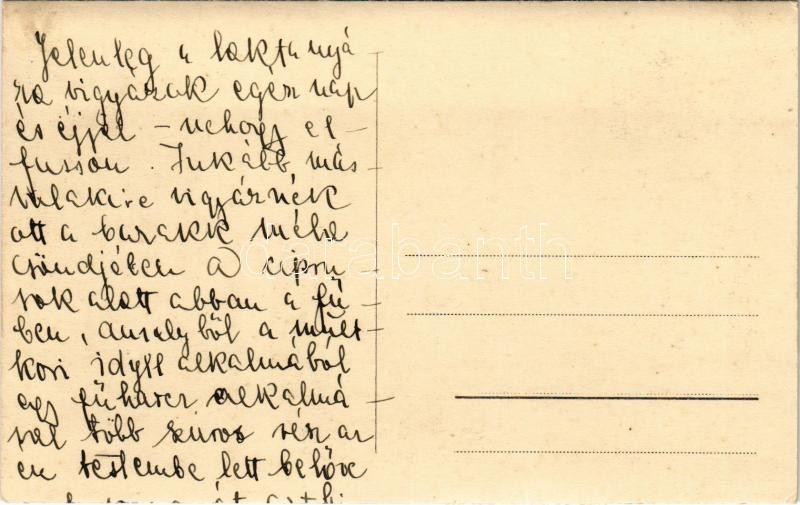 Jelenleg a laktanyá-
ra vigyázok egész nap
és éjjel – nehogy el-
fusson. Inkább más
valakire vigyáznék
ott a barakk méla
csöndjében a
sok alatt abban a fű-
ben, amelyből a mult-
kori idyll alkalmából
egy fűharc alkalmá-
val több szúrós rész az
én testembe lett belőve
darabanth